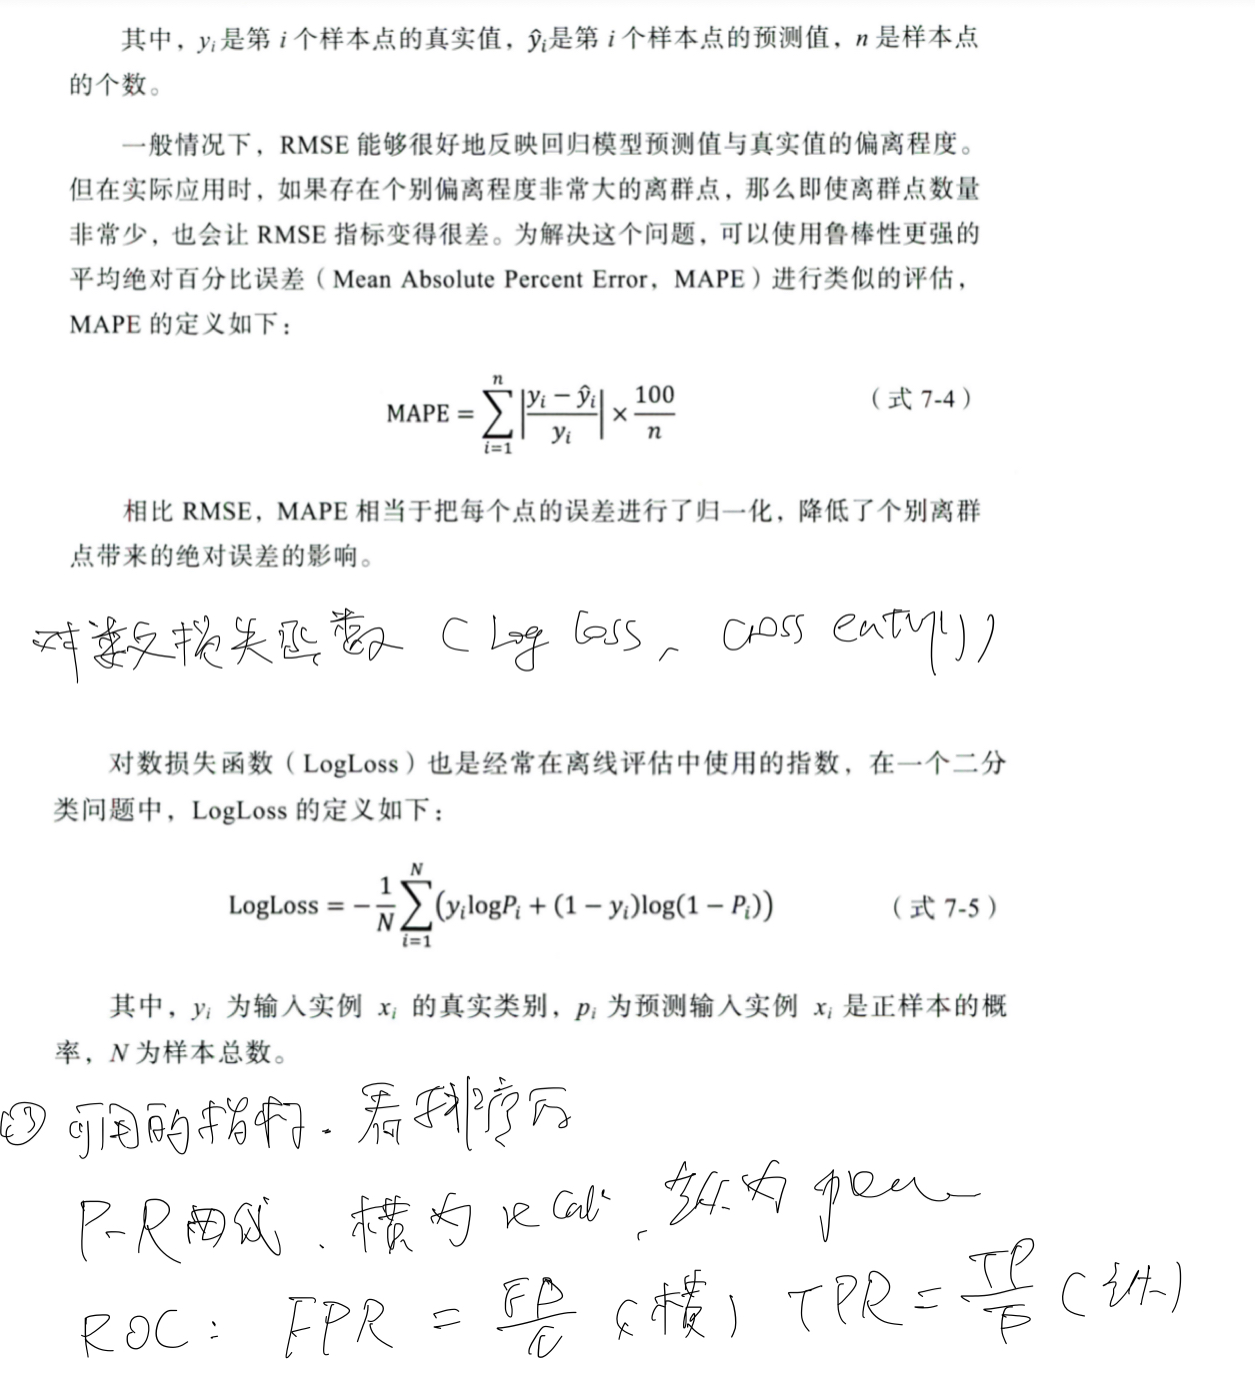 其中，yᵢ是第 i 个样本点的真实值，ŷᵢ是第 i 个样本点的预测值，n 是样本点
的个数。
一般情况下，RMSE 能够很好地反映回归模型预测值与真实值的偏离程度。
但在实际应用时，如果存在个别偏离程度非常大的离群点，那么即使离群点数量
非常少，也会让 RMSE 指标变得很差。为解决这个问题，可以使用鲁棒性更强的
平均绝对百分比误差（Mean Absolute Percent Error，MAPE）进行类似的评估，
MAPE 的定义如下：
MAPE = ∑_{i=1}^{n} |(yᵢ − ŷᵢ)/yᵢ| × 100/n （式 7-4）
相比 RMSE，MAPE 相当于把每个点的误差进行了归一化，降低了个别离群
点带来的绝对误差的影响。
对数损失函数（Log Loss、cross
对数损失函数（LogLoss）也是经常在离线评估中使用的指数，在一个二分
类问题中，LogLoss 的定义如下：
LogLoss = −1/N ∑_{i=1}^{N} (yᵢlogPᵢ + (1 − yᵢ)log(1 − Pᵢ)) （式 7-5）
其中，yᵢ 为输入实例 xᵢ 的真实类别，pᵢ 为预测输入实例 xᵢ 是正样本的概
率，N 为样本总数。
可用的指标. 看排序的
P-R曲线. 横为 recall、纵为
ROC: FPR = FP/N (横) TPR = TP/P (纵)